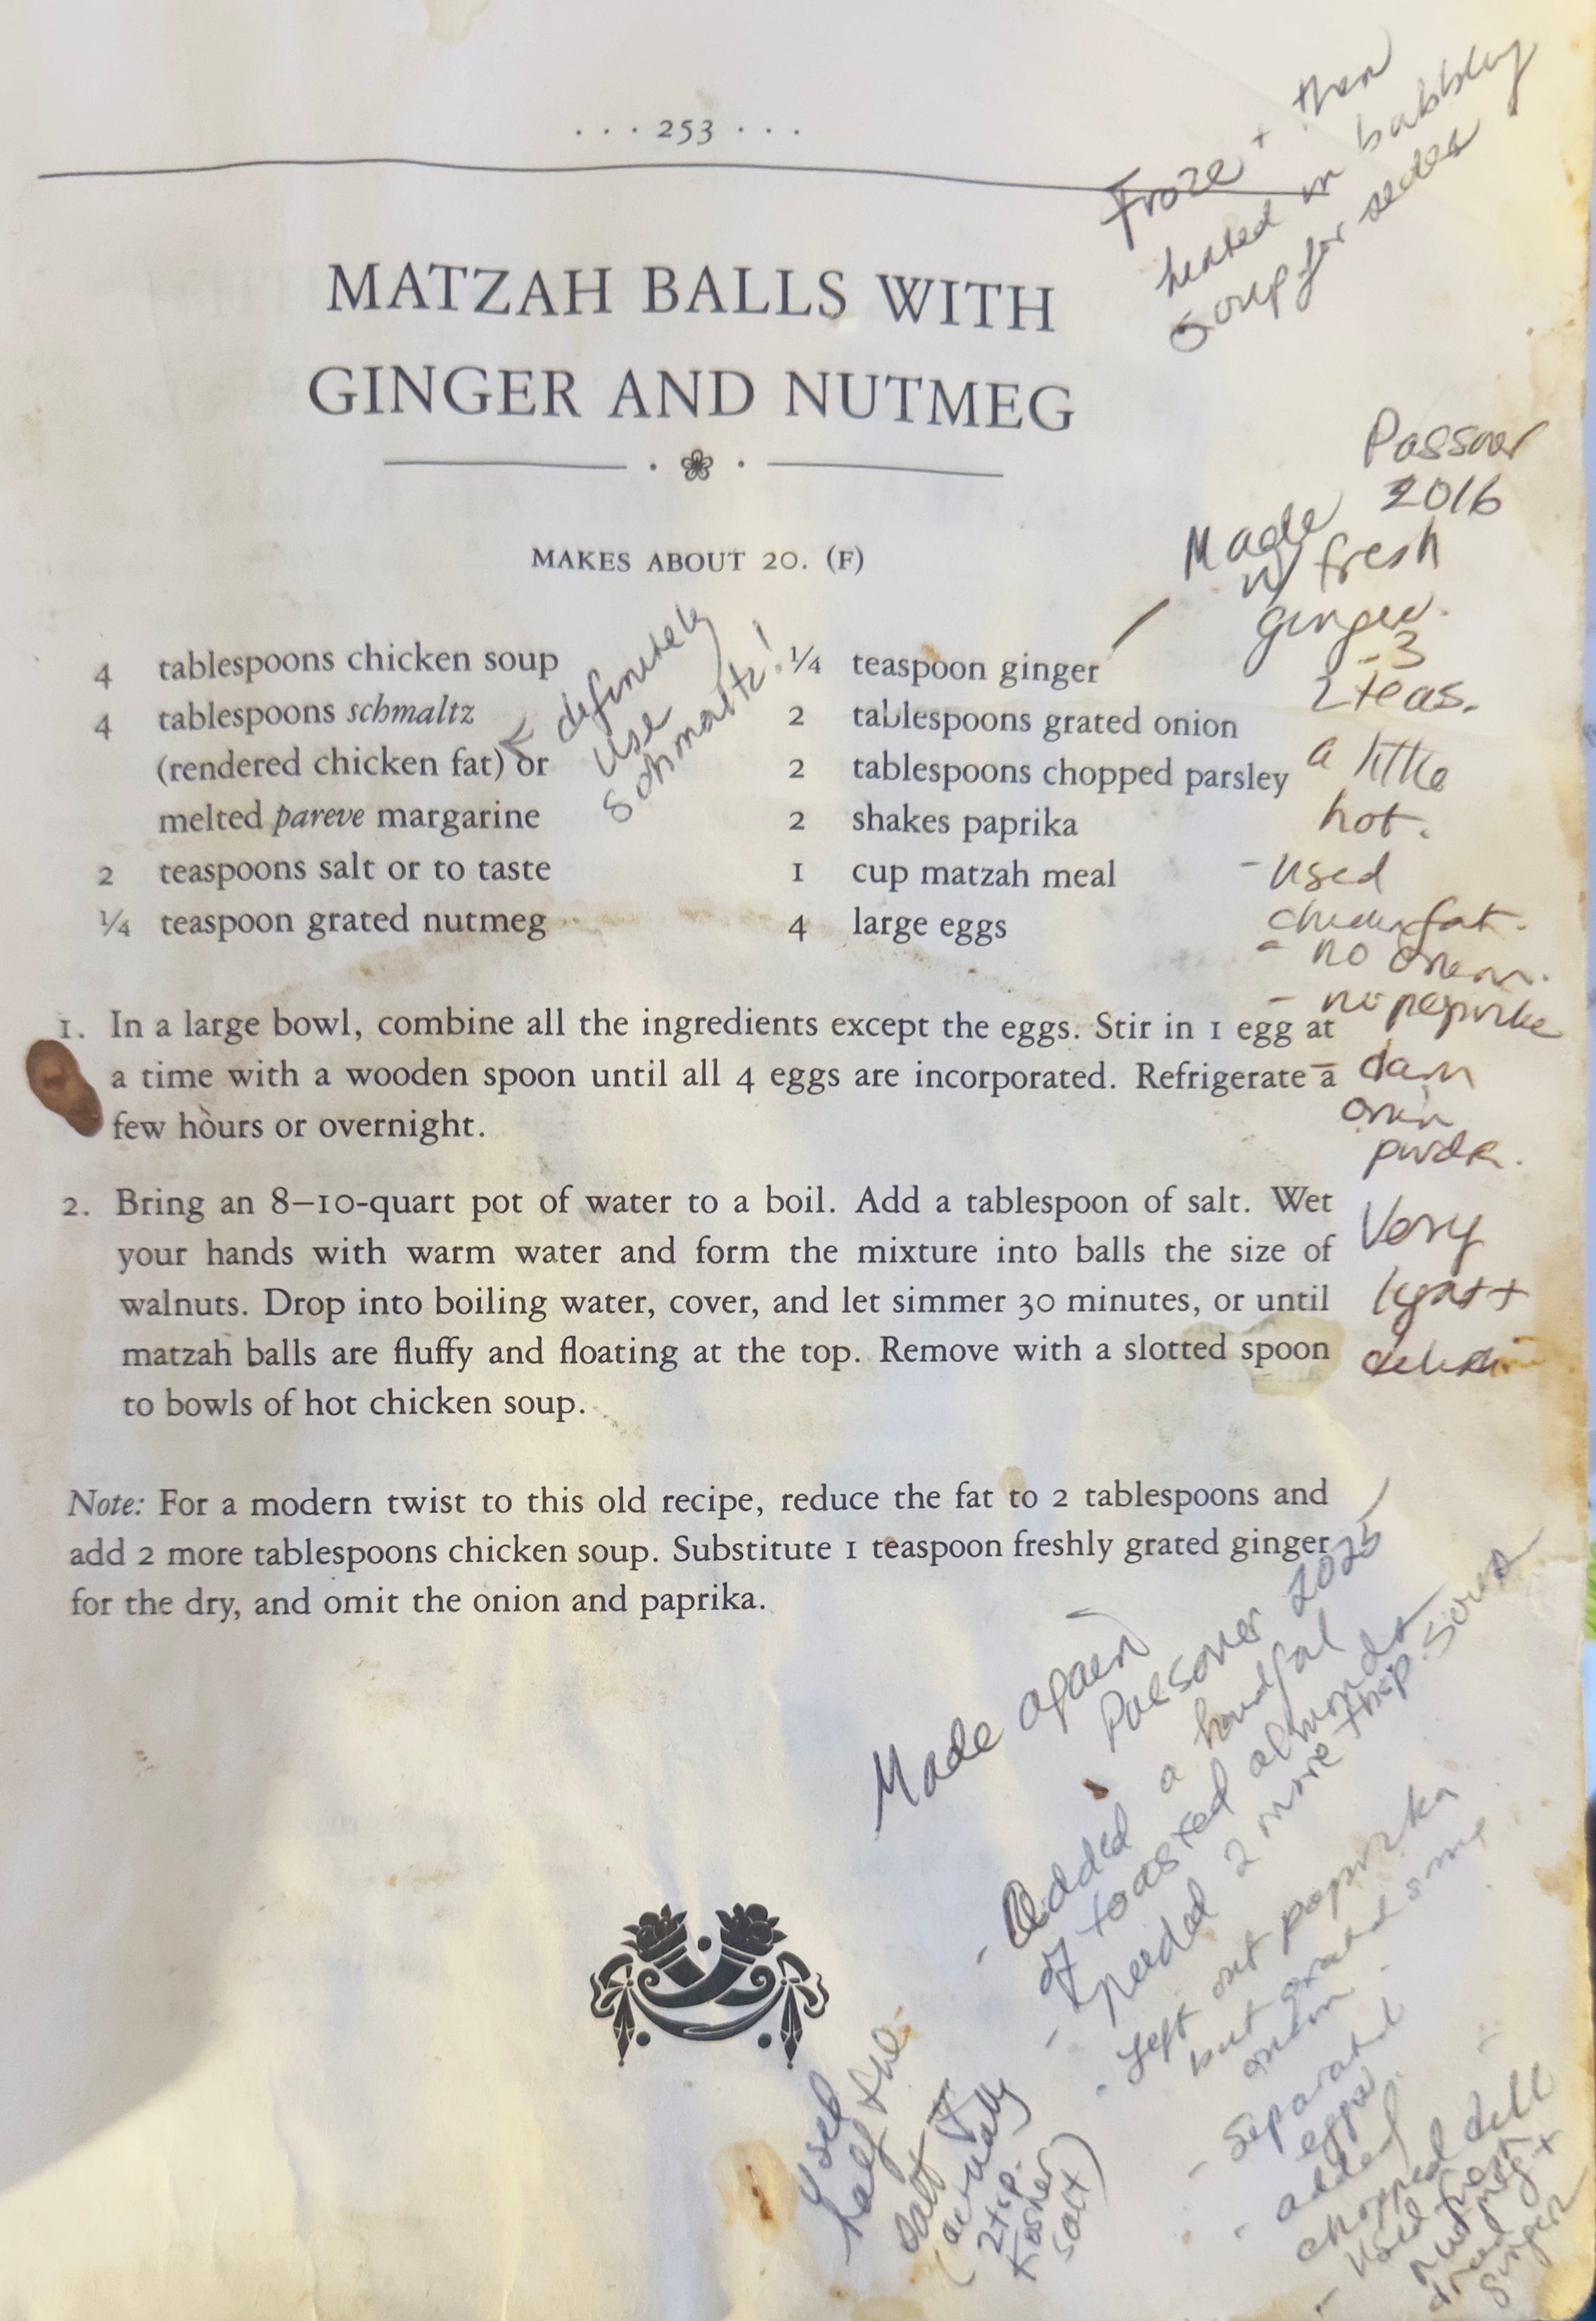 ... 253 ...
Froze + then
heated in bubbly
soup for seder
MATZAH BALLS WITH
GINGER AND NUTMEG
MAKES ABOUT 20. (F)
4 tablespoons chicken soup
4 tablespoons schmaltz
(rendered chicken fat) or
melted pareve margarine
2 teaspoons salt or to taste
¼ teaspoon grated nutmeg
definitely
use
schmaltz!
¼ teaspoon ginger
2 tablespoons grated onion
2 tablespoons chopped parsley
2 shakes paprika
1 cup matzah meal
4 large eggs
Passover
2016
Made
w/ fresh
ginger.
2-3
teas.
a little
hot.
- used
chicken fat.
- no onion.
- no paprika
- dash
onion
powder.
Very
light +
delicious
1. In a large bowl, combine all the ingredients except the eggs. Stir in 1 egg at
a time with a wooden spoon until all 4 eggs are incorporated. Refrigerate a
few hours or overnight.
2. Bring an 8–10-quart pot of water to a boil. Add a tablespoon of salt. Wet
your hands with warm water and form the mixture into balls the size of
walnuts. Drop into boiling water, cover, and let simmer 30 minutes, or until
matzah balls are fluffy and floating at the top. Remove with a slotted spoon
to bowls of hot chicken soup.
Note: For a modern twist to this old recipe, reduce the fat to 2 tablespoons and
add 2 more tablespoons chicken soup. Substitute 1 teaspoon freshly grated ginger
for the dry, and omit the onion and paprika.
Made again
Passover 2025
- Added a handful
of toasted almonds
- needed 2 more tbsp. soup
- Left out paprika
but grated some
onion
- Separated
eggs.
- added
chopped dill
- used fresh
nutmeg +
dried
ginger
Used
half the
salt
(actually
2 tsp.
Kosher
salt)